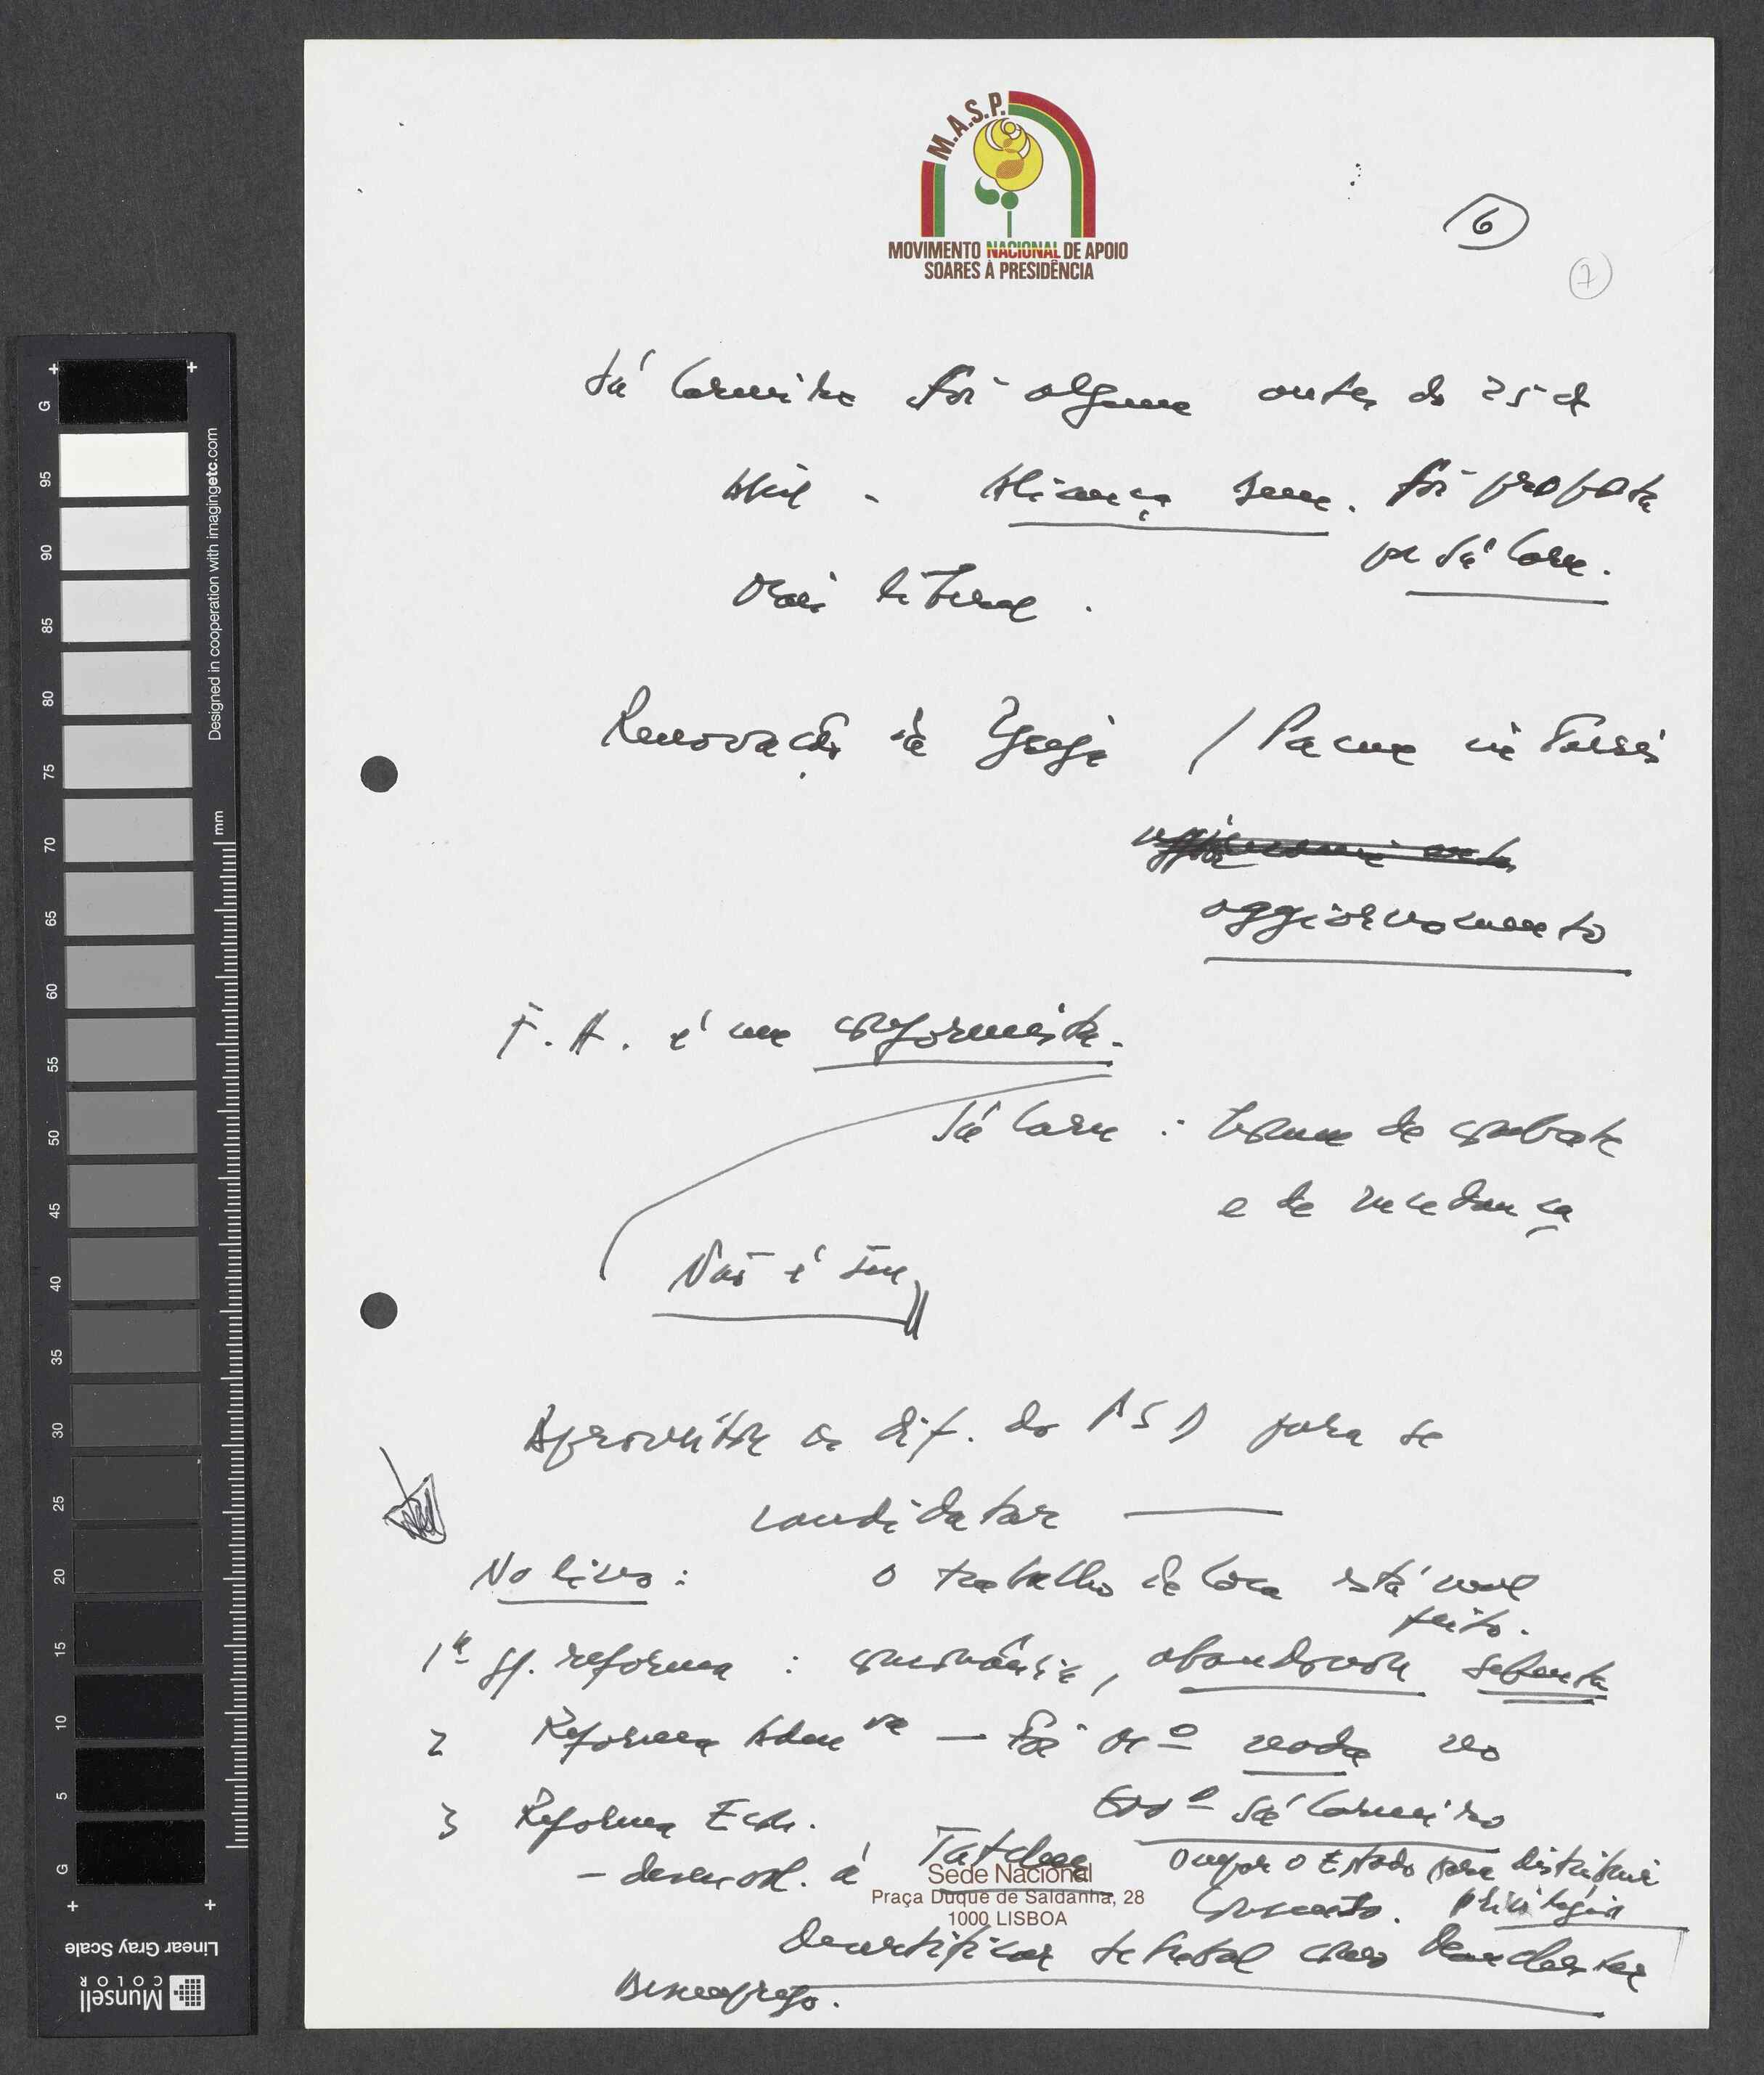 M.A.S.P.
MOVIMENTO NACIONAL DE APOIO
SOARES À PRESIDÊNCIA
6
7
Sá Carneiro foi alguma antes do 25 d
Abril - Aliança Dem. foi proposta
por Sá Carn.
Ala Liberal.
Renovação da Igreja / Pacem in Terris
aggiornamento
F. A. é um conformista.
Sá Carn : homem de combate
e de mudança
Não é seu
Aproveitou as dif. do PSD para se
candidatar
No livro: o trabalho de casa está mal
feito.
1ª gr. reforma : , abandonou
2 Reforma Admva — Foi nº nada no
Govº Sá Carneiro
3 Reforma Econ.
- desenvol. à Tatcher
ocupar o Estado para distribuir
privilégios
Desertificar Setúbal como Manchester
Desemprego.
Sede Nacional
Praça Duque de Saldanha, 28
1000 LISBOA
Designed in cooperation with imagingetc.com
mm
G
95
90
85
80
75
70
65
60
55
50
45
40
35
30
25
20
15
10
5
G
Linear Gray Scale
Munsell
COLOR